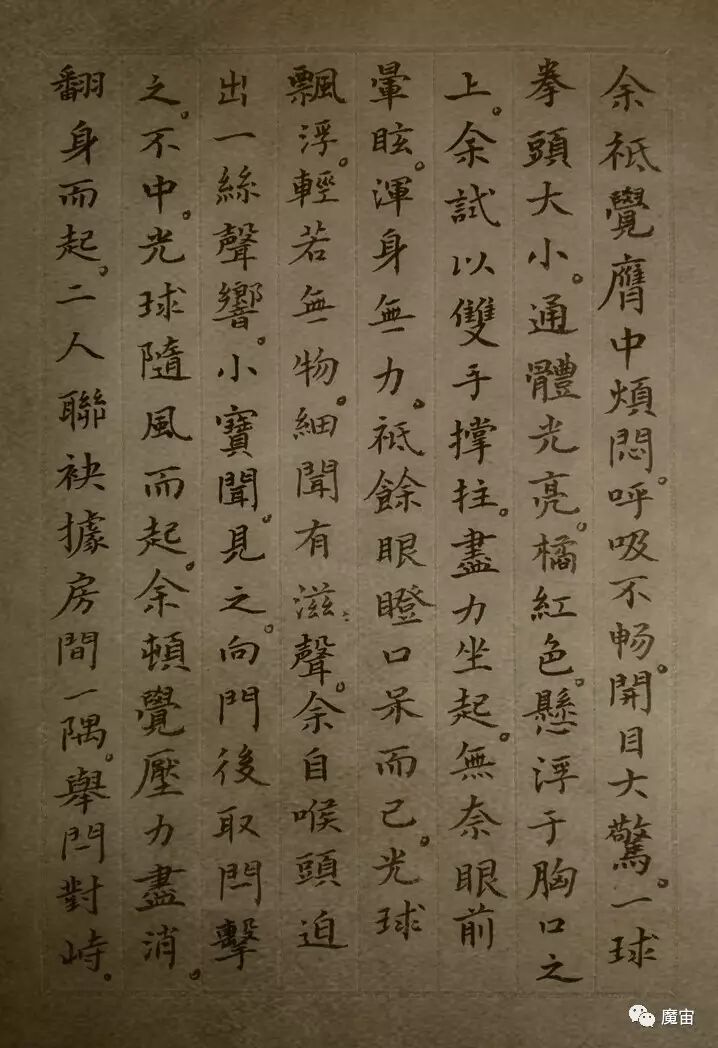 余祇覺膺中煩悶。呼吸不畅。開目大驚。一球
拳頭大小。通體光亮。橘紅色。懸浮于胸口之
上。余試以雙手撑拄。盡力坐起。無奈眼前
暈眩。渾身無力。祇餘眼瞪口呆而已。光球
飄浮。輕若無物。細聞有滋滋聲。余自喉頭迫
出一絲聲響。小寶聞。見之。向門後取閂擊
之。不中。光球隨風而起。余頓覺壓力盡消。
翻身而起。二人聯袂據房間一隅。舉閂對峙。
魔宙